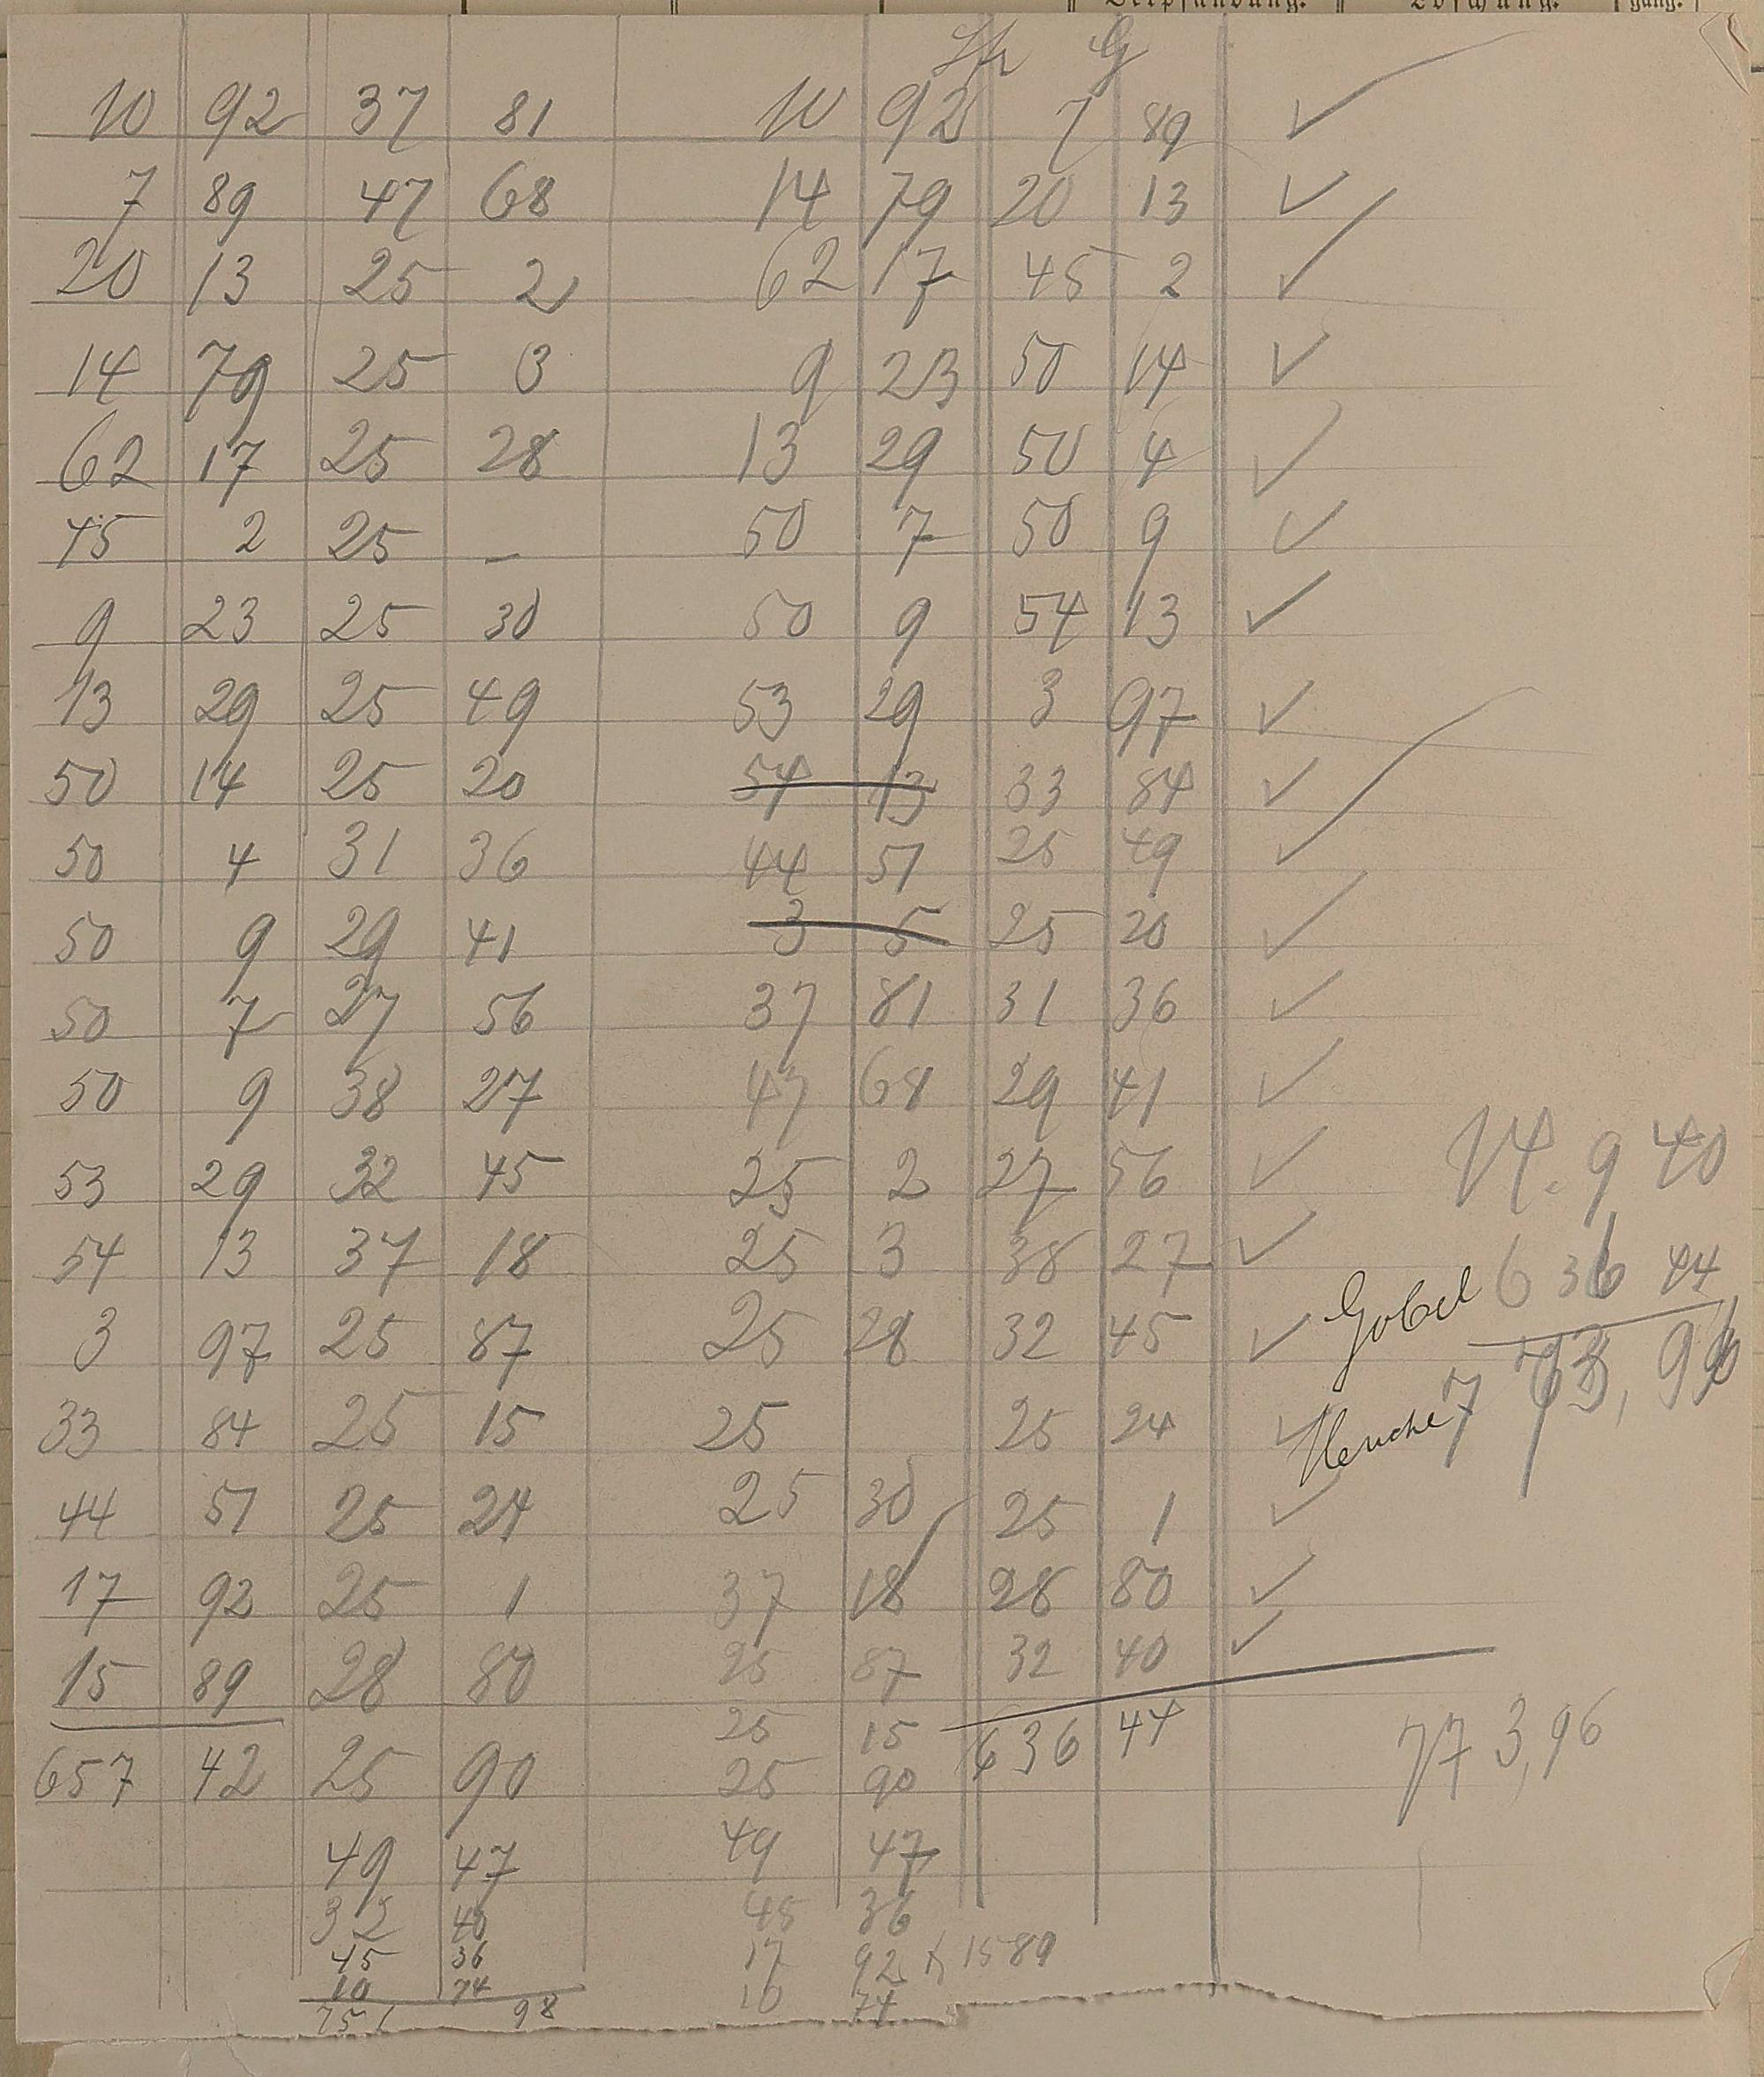 Verpfändung. Löschung. gung.
10 92 37 81 10 92 7 89 ✓
7 89 47 68 14 79 20 13 ✓
20 13 25 2 62 17 45 2 ✓
14 79 25 3 9 23 50 14 ✓
62 17 25 28 13 29 50 4 ✓
45 2 25 – 50 7 50 9 ✓
9 23 25 30 50 9 54 13 ✓
13 29 25 49 53 29 3 97 ✓
50 14 25 20 54 13 33 84 ✓
50 4 31 36 44 51 25 49 ✓
50 9 29 41 3 5 25 20 ✓
50 7 27 56 37 81 31 36 ✓
50 9 38 27 47 68 29 41 ✓
53 29 32 45 25 2 27 56 ✓
54 13 37 18 25 3 38 27 ✓
3 97 25 87 25 28 32 45 ✓
33 84 25 15 25 25 24 ✓
44 51 25 24 25 30 25 1 ✓
17 92 25 1 37 18 28 80 ✓
15 89 28 80 25 87 32 40 ✓
25 15 636 44
657 42 25 90 25 90
49 47 49 47
32 40 45 36
45 36 17 92 15 89
10 74 10 74
751 98
9 40
Gobel 636 44
7 73,96
773,96